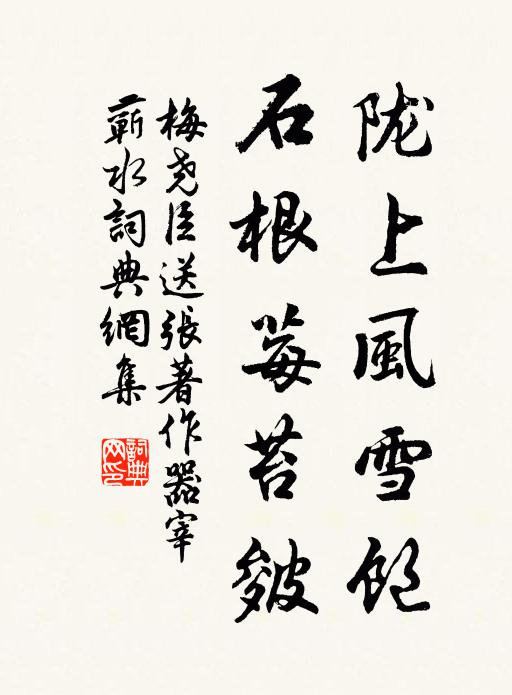 陇上風雪飽
石根莓苔皴
梅尧臣送張著作器宰
蕲水詞典網集
詞典网印